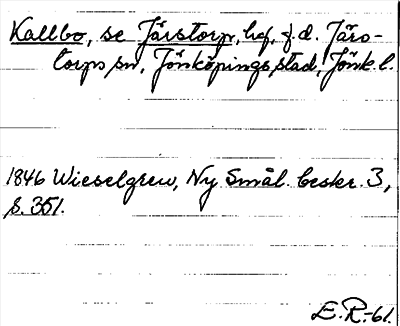 Kallbo, se Järstorp, hg, f.d. Järs-
torps sn, Jönköpings stad, Jönk. l.
1846 Wieselgren, Ny Smål. beskr. 3,
s. 351.
E.R.-61.